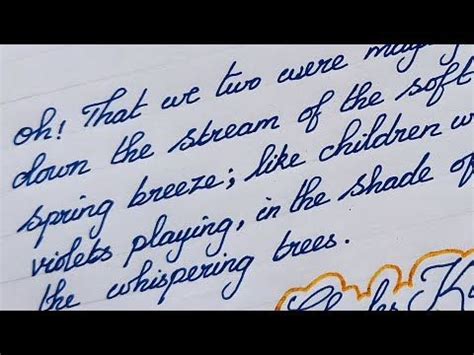 oh! That we two were
down the stream of the soft
spring breeze; like children
violets playing, in the shade of
the whispering trees.